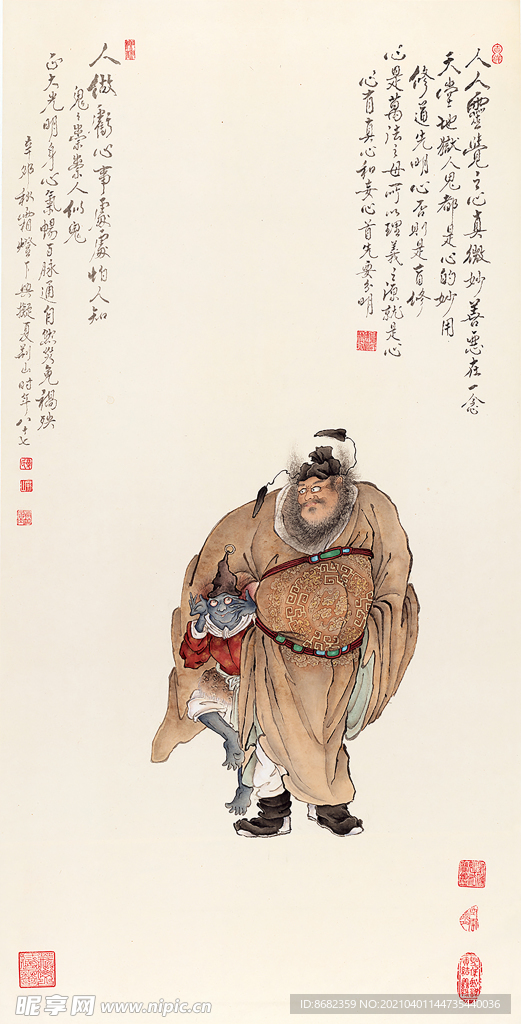 人人灵觉之心真微妙善恶在一念
天堂地獄人鬼都是心的妙用
修道先明心否則是盲修
心是萬法之母所以理義之源就是心
心有真心和妄心首先要分明
人做虧心事處處怕人知
鬼鬼祟祟人似鬼
正大光明身心氣暢百脉通自然災免禍殃
辛卯秋霜燈下興擬夏荆山时年八十七
昵享网 www.nipic.cn
ID:8682359 NO:20210401144735440036